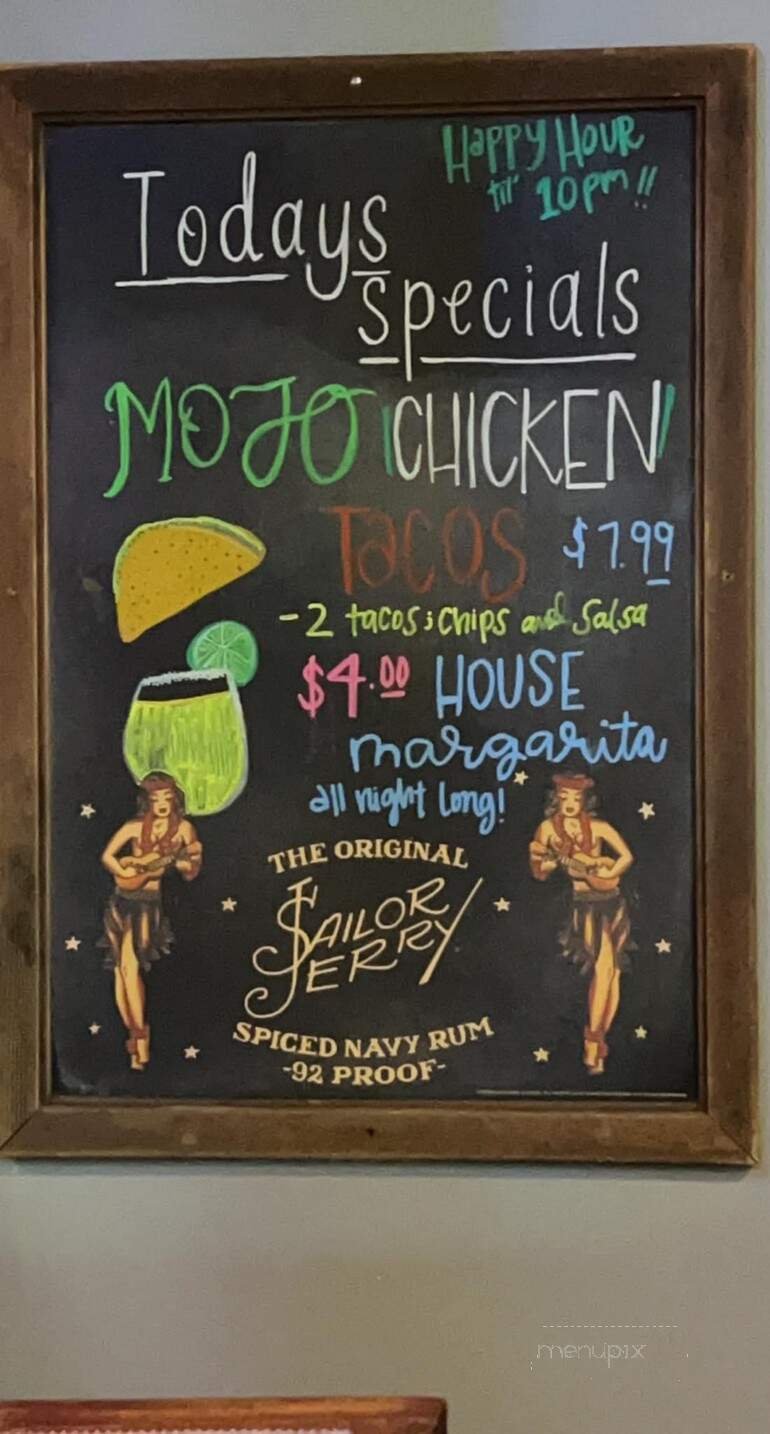 Happy Hour
til' 10pm!!
Todays
Specials
MOJO CHICKEN
Tacos $7.99
-2 tacos; chips and salsa
$4.00 HOUSE
margarita
all night long!
THE ORIGINAL
SAILOR
JERRY
SPICED NAVY RUM
-92 PROOF-
menupix